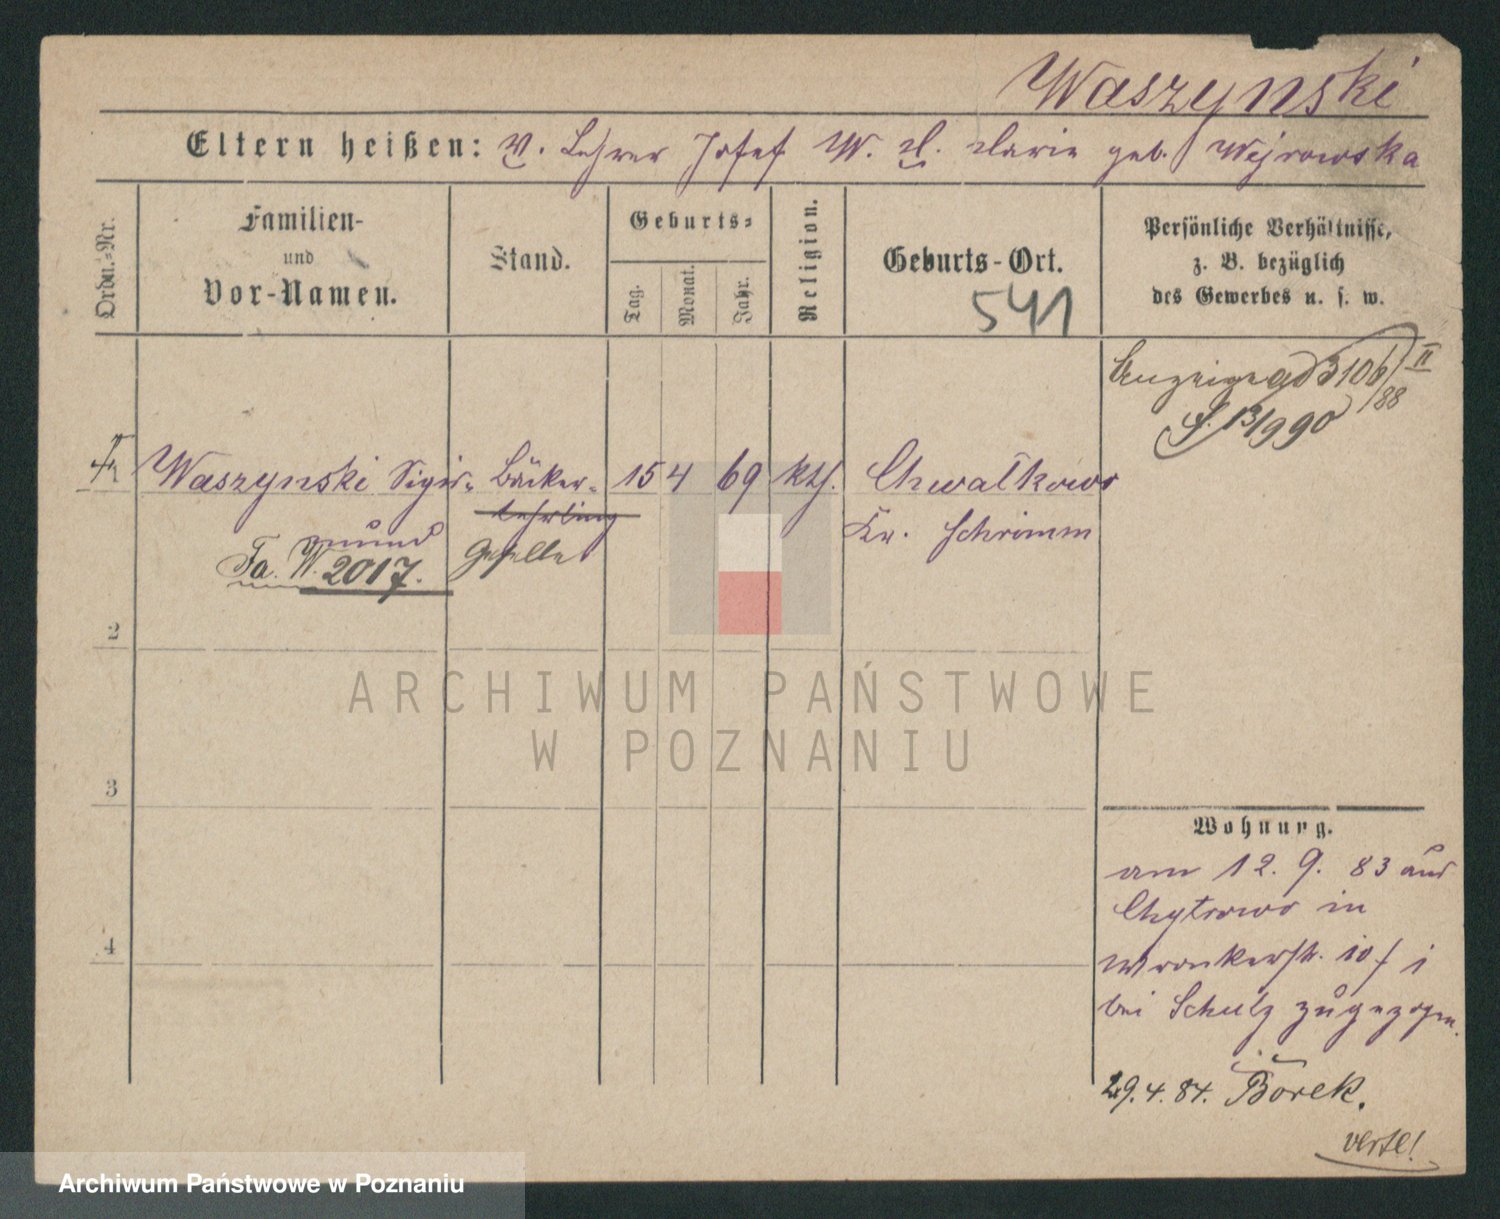 Waszynski
Eltern heißen: V. Lehrer Josef W. M. Marie geb. Wejrowska
Ordn.-Nr.
Familien-
und
Vor-Namen.
Stand.
Geburts-
Tag.
Monat.
Jahr.
Religion.
Geburts-Ort.
541
Persönliche Verhältnisse,
z. B. bezüglich
des Gewerbes u. s. w.
Anzeige ad 3106/88 II
S. 13/990
Waszynski Sigis- Bäcker- 15 4 69 kth. Chwalkowo
mund lehrling Kr. Schrimm
Fa. W. 2017. Geselle
2
3
4
ARCHIWUM PAŃSTWOWE
W POZNANIU
Wohnung.
am 12. 9. 83 aus
Chytrowo in
Wronkerstr. 10/I
bei Schulz zugezogen.
29. 4. 84. Borek.
verte!
Archiwum Państwowe w Poznaniu